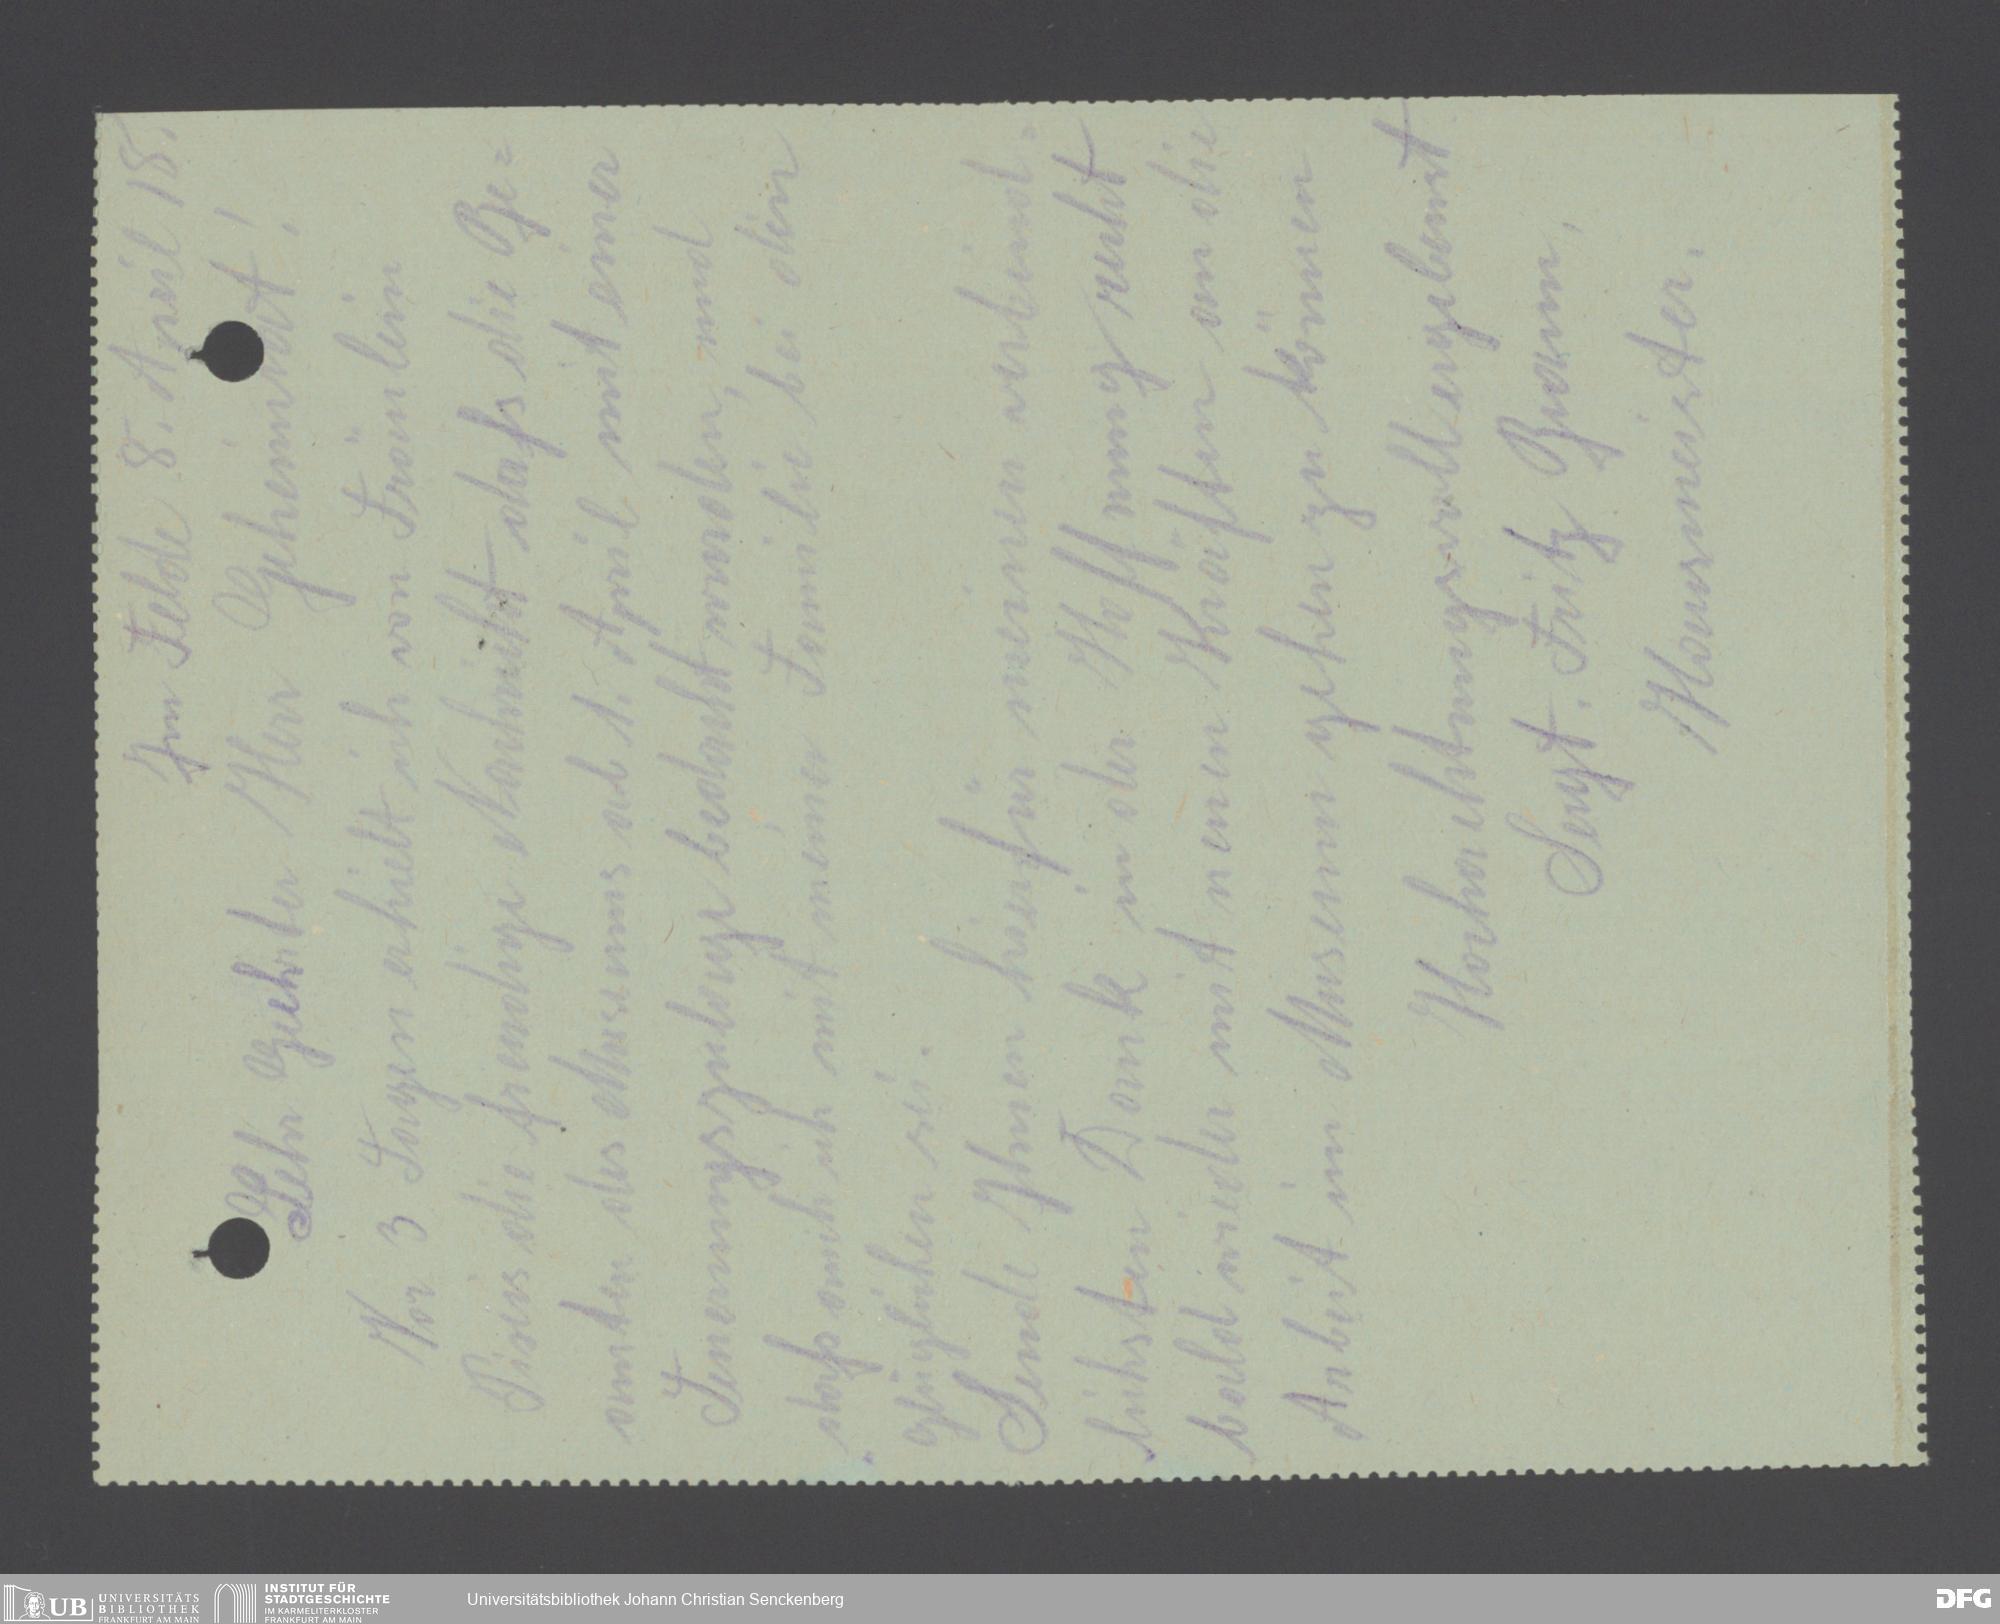 Im Felde 8. April 18.
Sehr Geehrter Herr Geheimrat!
Vor 3 Tagen erhielt ich von Fräulein
die freudige Nachricht dafs die Be=
amten des Museums ab 1. April mit einer
Teuerungszulage bedacht wurden, und
dafs auch ich mit meiner Familie bei den
sei.
Sende Ihnen hierfür meinen verbind=
lichsten Dank in der Hoffnung recht
bald wieder mit neuen Kräften an die
Arbeit im Museum gehen zu können
Hochachtungsvoll ergebenst
Sergt. Fritz Braun,
Hausmeister.
UB UNIVERSITÄTS
BIBLIOTHEK
FRANKFURT AM MAIN
INSTITUT FÜR
STADTGESCHICHTE
IM KARMELITERKLOSTER
FRANKFURT AM MAIN
Universitätsbibliothek Johann Christian Senckenberg
DFG